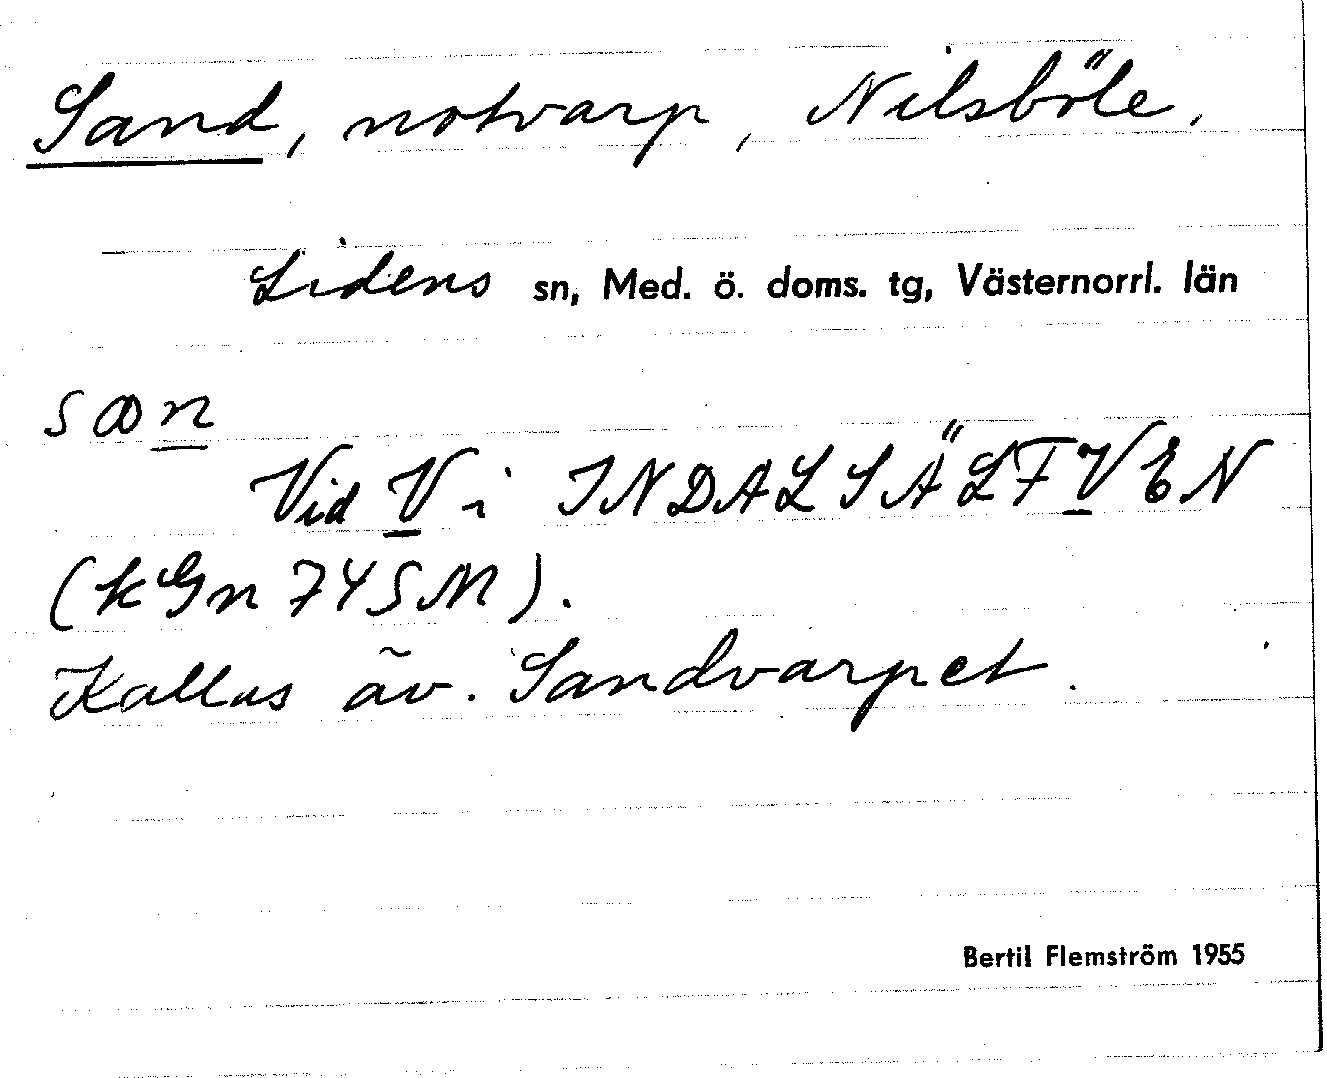 Sand, notvarp, Nilsböle.
Lidens sn, Med. ö. doms. tg, Västernorrl. län
san
Vid V i INDALSÄLFVEN
(kGn 74SM).
Kallas äv. Sandvarpet.
Bertil Flemström 1955